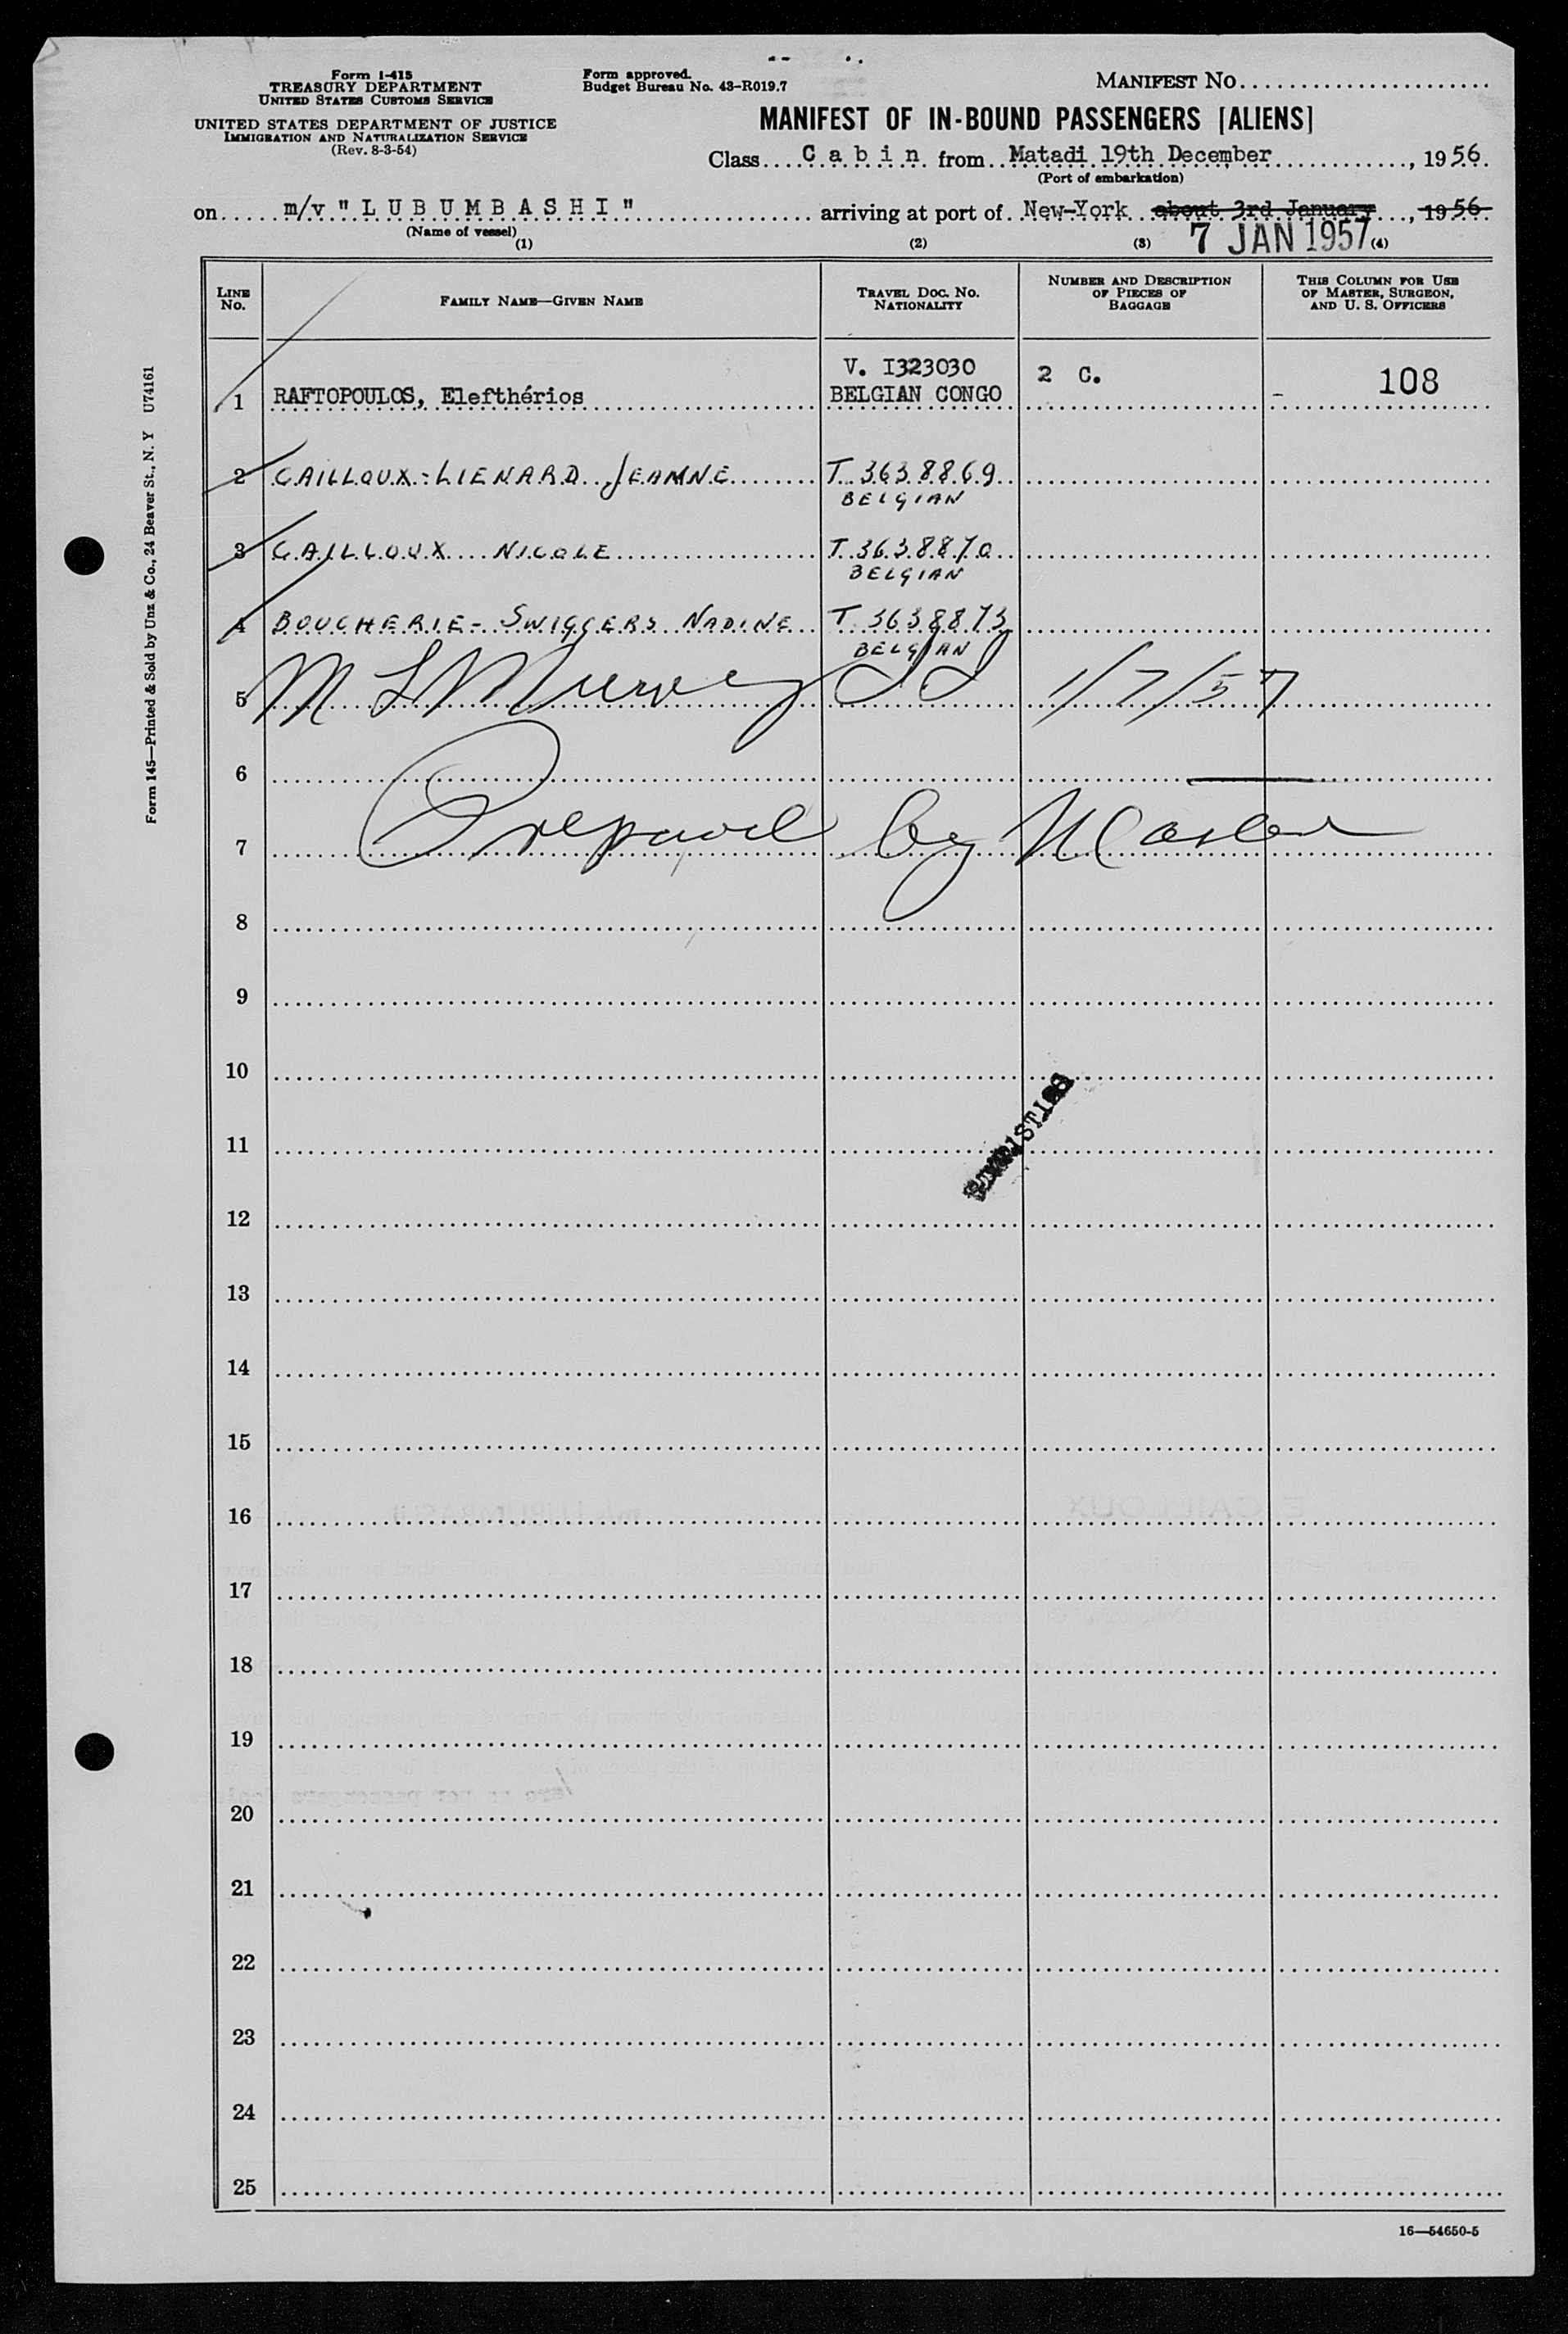 Form I-415
TREASURY DEPARTMENT
UNITED STATES CUSTOMS SERVICE
UNITED STATES DEPARTMENT OF JUSTICE
IMMIGRATION AND NATURALIZATION SERVICE
(Rev. 8-3-54)
Form approved.
Budget Bureau No. 43-R019.7
MANIFEST NO.
MANIFEST OF IN-BOUND PASSENGERS [ALIENS]
Class Cabin from Matadi 19th December, 1956.
(Port of embarkation)
on m/v "LUBUMBASHI" arriving at port of New-York about 3rd January, 1956.
(Name of vessel)
7 JAN 1957
(1) (2) (3) (4)
LINE NO.
FAMILY NAME—GIVEN NAME
TRAVEL DOC. NO. NATIONALITY
NUMBER AND DESCRIPTION OF PIECES OF BAGGAGE
THIS COLUMN FOR USE OF MASTER, SURGEON, AND U. S. OFFICERS
V. I323030 2 C. 108
1 RAFTOPOULOS, Elefthérios BELGIAN CONGO -
2 CAILLOUX-LIENARD JEANNE T 3638869
BELGIAN
3 CAILLOUX NICOLE T 3638870
BELGIAN
4 BOUCHERIE-SWIGGERS NADINE T 3638873
BELGIAN
5 M L 1/7/57
6
7 Prepared by Master
8
9
10
11
12
13
14
15
16
17
18
19
20
21
22
23
24
25
16—54650-5
Form 145—Printed & Sold by Unz & Co., 24 Beaver St., N. Y U74161